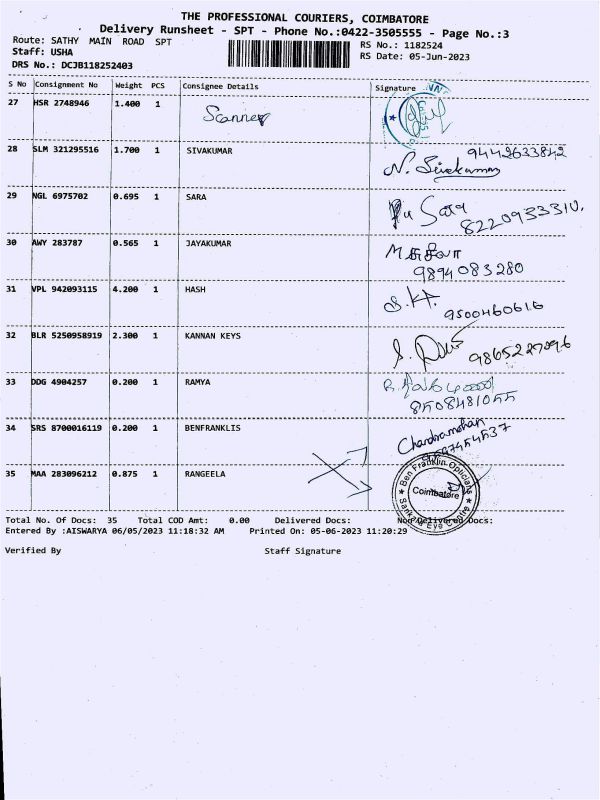 THE PROFESSIONAL COURIERS, COIMBATORE
Delivery Runsheet - SPT - Phone No.:0422-3505555 - Page No.:3
Route: SATHY MAIN ROAD SPT
RS No.: 1182524
Staff: USHA
RS Date: 05-Jun-2023
DRS No.: DCJB118252403
S No Consignment No Weight PCS Consignee Details Signature
27 HSR 2748946 1.400 1 Scanner
28 SLM 321295516 1.700 1 SIVAKUMAR 9442633842
N. Sivakumar
29 NGL 6975702 0.695 1 SARA Sara
8220933310.
30 AWY 283787 0.565 1 JAYAKUMAR
9894083280
31 VPL 942093115 4.200 1 HASH S.
9500460616
32 BLR 5250958919 2.300 1 KANNAN KEYS S.
9865227096
33 DDG 4904257 0.200 1 RAMYA
8508481055
34 SRS 8700016119 0.200 1 BENFRANKLIS Chandramohan
35 MAA 283096212 0.875 1 RANGEELA
Ben Franklin Opticians
Coimbatore
Sankara Eye Centre
Total No. Of Docs: 35 Total COD Amt: 0.00 Delivered Docs: Non Delivered Docs:
Entered By :AISWARYA 06/05/2023 11:18:32 AM Printed On: 05-06-2023 11:20:29
Verified By Staff Signature